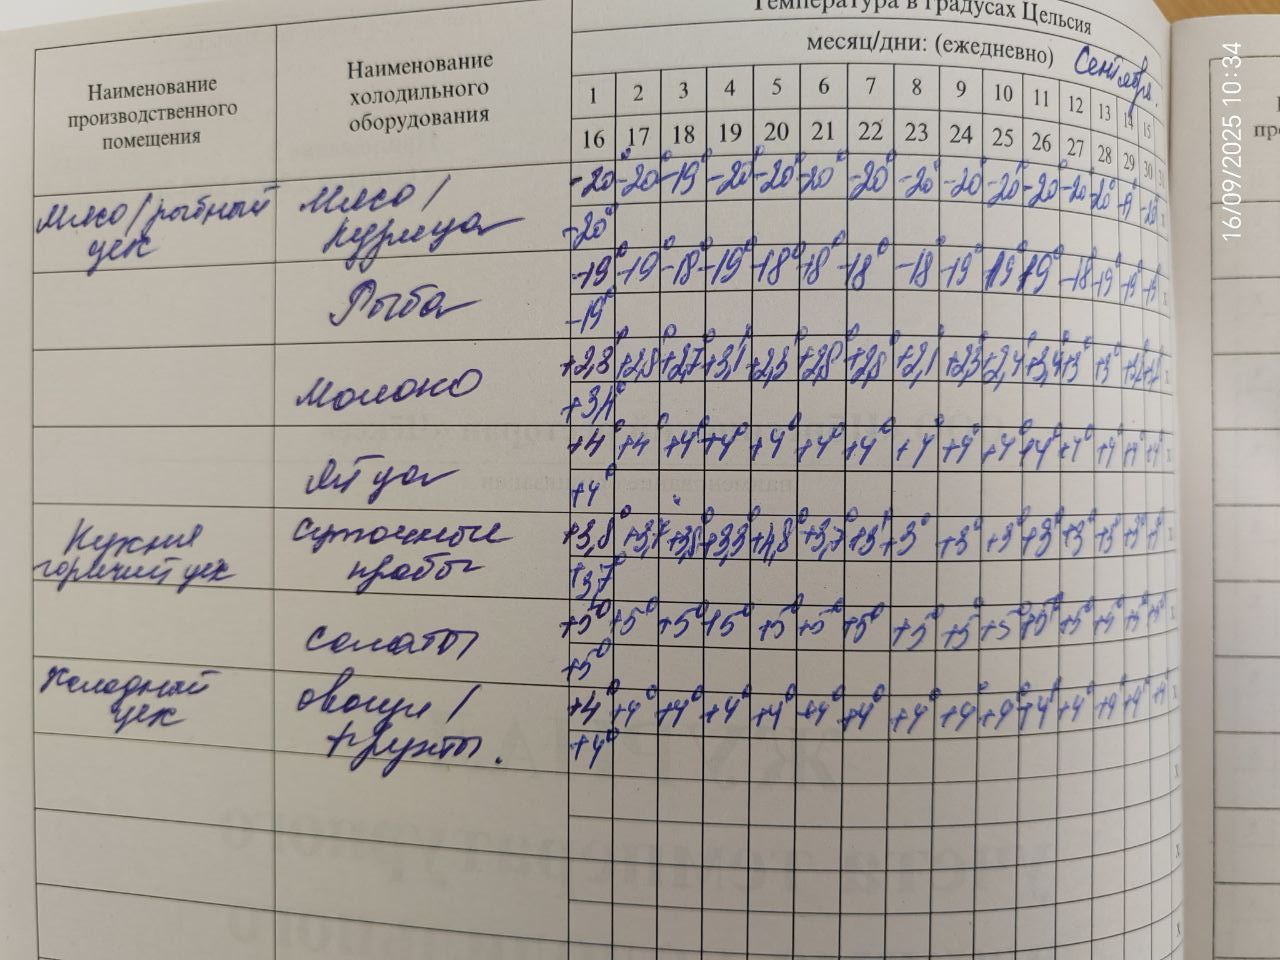 Температура в градусах Цельсия
месяц/дни: (ежедневно) Сентябрь.
Наименование
производственного
помещения
Наименование
холодильного
оборудования
1 2 3 4 5 6 7 8 9 10 11 12 13 14 15
16 17 18 19 20 21 22 23 24 25 26 27 28 29 30 31
Мясо/рыбный
цех
Мясо/
курица
-20° -20° -19° -20° -20° -20° -20° -20° -20° -20° -20° -20 -20° -19 -20 x
-20°
Рыба
-19° -19° -18° -19° +18° +18° -18° -18° -19° -19 -19° -18° -19 -19° -19 x
-19°
Молоко
+2,8° +2,8° +2,7° +3,1° +2,3° +2,8° +2,8° +2,1° +2,3° +2,4° +3,4° +3° +3° x
+3,4°
Яйца
+4° +4° +4° +4° +4° +4° +4° +4° +4° +4° +4° +4° +4° +4° +4° x
+4°
Кухня
горячий цех
Суточные
пробы
+3,8° +3,7 +3,8° +3,3° +4,8° +3,7° +3° +3° +3° +3° +3° +3° +3° +3° +3° x
+3,7°
Салаты
+5° +5° +5° +5° +5° +5° +5° +5° +5° +5° +5° +5° +5° +5° +5° x
+5°
Холодный
цех
Овощи/
фрукты.
+4° +4° +4° +4° +4° +4° +4° +4° +4° +4° +4° +4° +4° +4° +4 x
+4°
x
x
x
16/09/2025 10:34